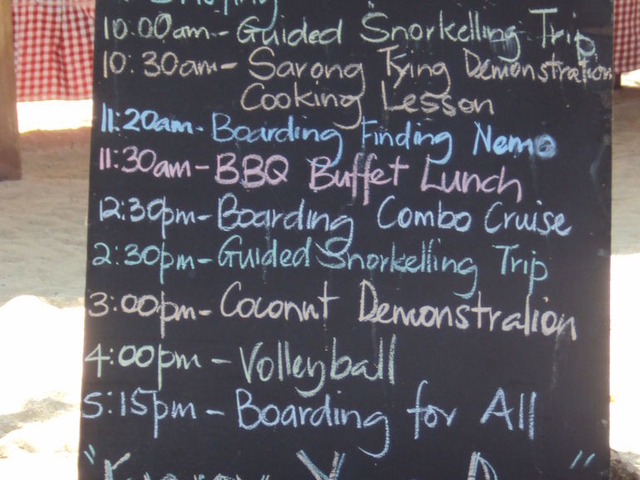 10:00am - Guided Snorkelling Trip
10:30am - Sarong Tying Demonstration
Cooking Lesson
11:20am - Boarding Finding Nemo
11:30am - BBQ Buffet Lunch
12:30pm - Boarding Combo Cruise
2:30pm - Guided Snorkelling Trip
3:00pm - Coconut Demonstration
4:00pm - Volleyball
5:15pm - Boarding for All